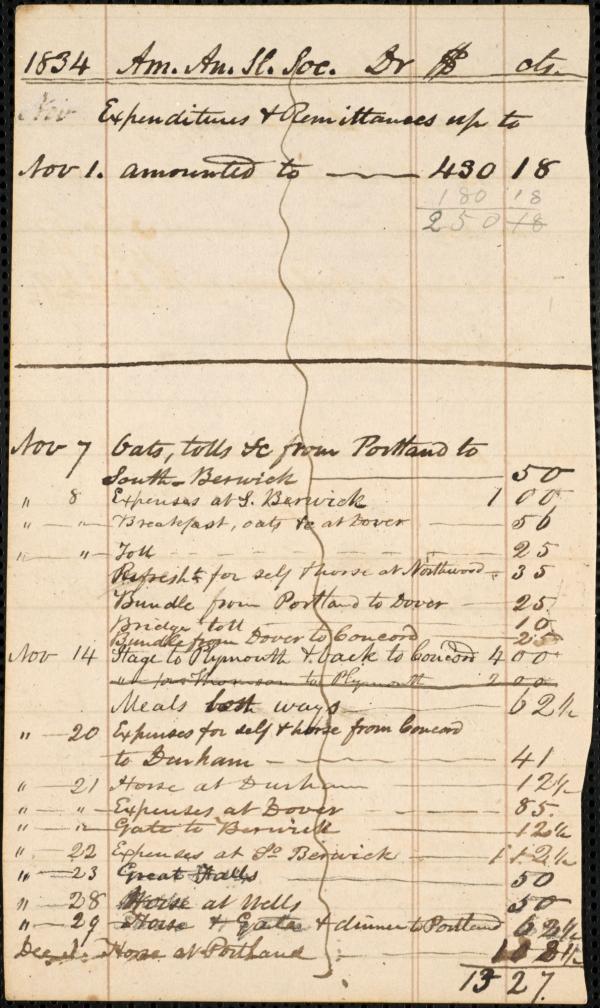 1834 Am. An. Sl. Soc. Dr $ cts.
Nov Expenditures & Remittances up to
Nov 1. amounted to — 430 18
180 18
250 18
Nov 7 Oats, tolls &c from Portland to
South-Berwick — 50
" — 8 Expenses at S. Berwick 1 00
" — " — Breakfast, oats &c at Dover — 56
" — " — Toll — 25
Refresht for self & horse at Northwood - 35
Bundle from Portland to Dover — 25
Bridge toll — 10
Bundle from Dover to Concord — 25
Nov 14 Stage to Plymouth & back to Concord 4 00
" for Thomson to Plymouth 2 00
Meals both ways — 62½
" — 20 Expenses for self & horse from Concord
to Durham — 41
" — 21 Horse at Durham 12½
" — " — Expenses at Dover — 85
" — " — Gate to Berwick — 12½
" — 22 Expenses at So Berwick — 1 12½
" — 23 Great Falls 50
" — 28 Horse at Wells 50
" — 29 Horse & Gates & dinner to Portland 62½
Dec 1. Horse at Portland
13 27